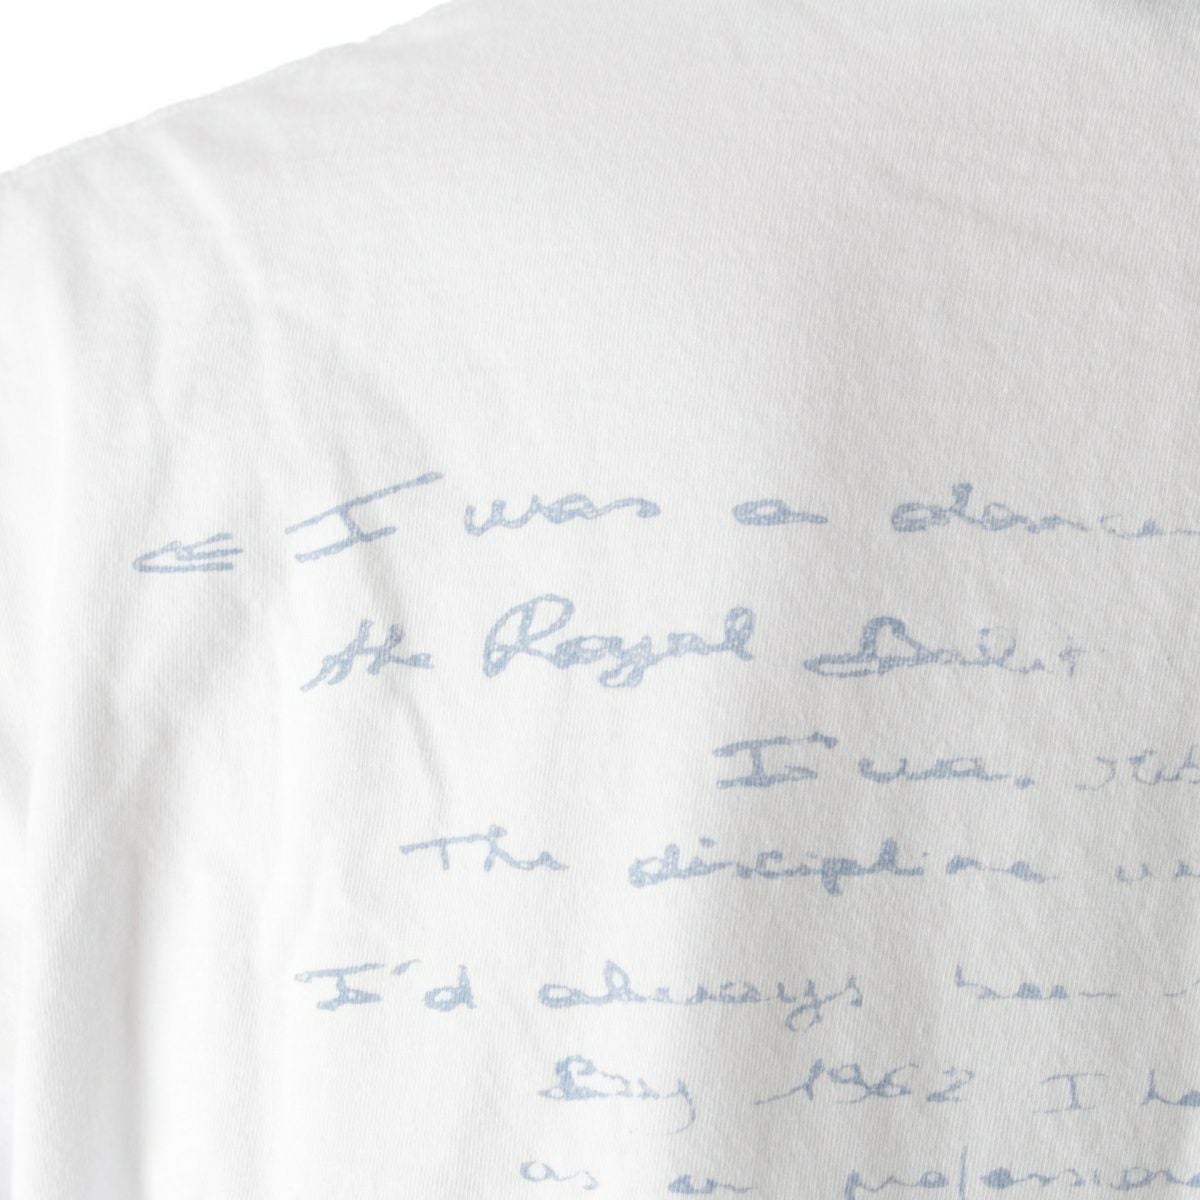 « I was a dance
the Royal Ballet
I was
The discipline we
I'd always been
By 1962 I ha
as a professiona